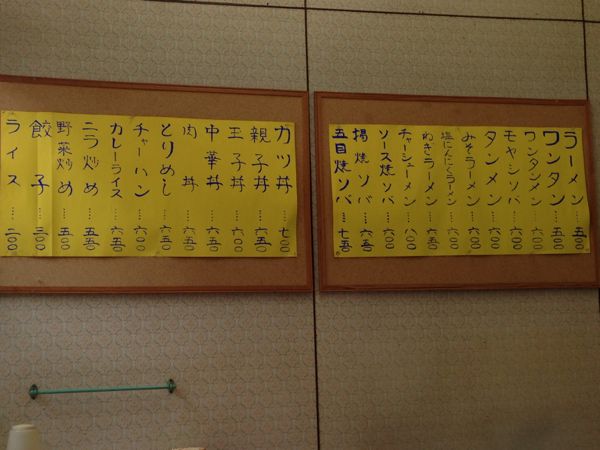 ラーメン……五〇〇
ワンタン……五〇〇
ワンタンメン……六〇〇
モヤシソバ……六〇〇
タンメン……六〇〇
みそラーメン……六〇〇
塩にんにくラーメン……六五〇
ねぎラーメン……六五〇
チャーシューメン……八〇〇
ソース焼ソバ……六〇〇
揚焼ソバ……六五〇
五目焼ソバ……七五〇
カツ丼……七〇〇
親子丼……六五〇
玉子丼……六〇〇
中華丼……六五〇
肉丼……六五〇
とりめし……六五〇
チャーハン……六〇〇
カレーライス……六五〇
ニラ炒め……五五〇
野菜炒め……五〇〇
餃子……三〇〇
ライス……二〇〇